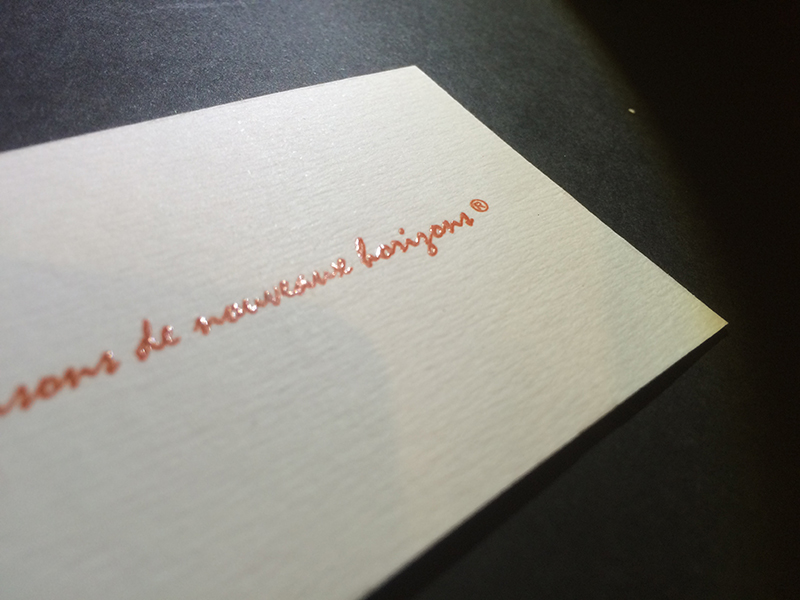 de nouveaux horizons®